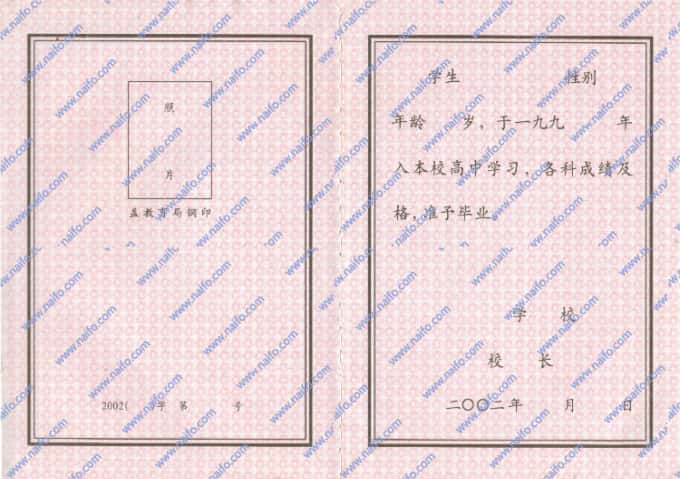 照
片
盖教育局钢印
2002( )字 第 号
学生 性别
年龄 岁，于一九九 年
入本校高中学习，各科成绩及
格，准予毕业。
学 校
校 长
二〇〇二年 月 日
www.naifo.com